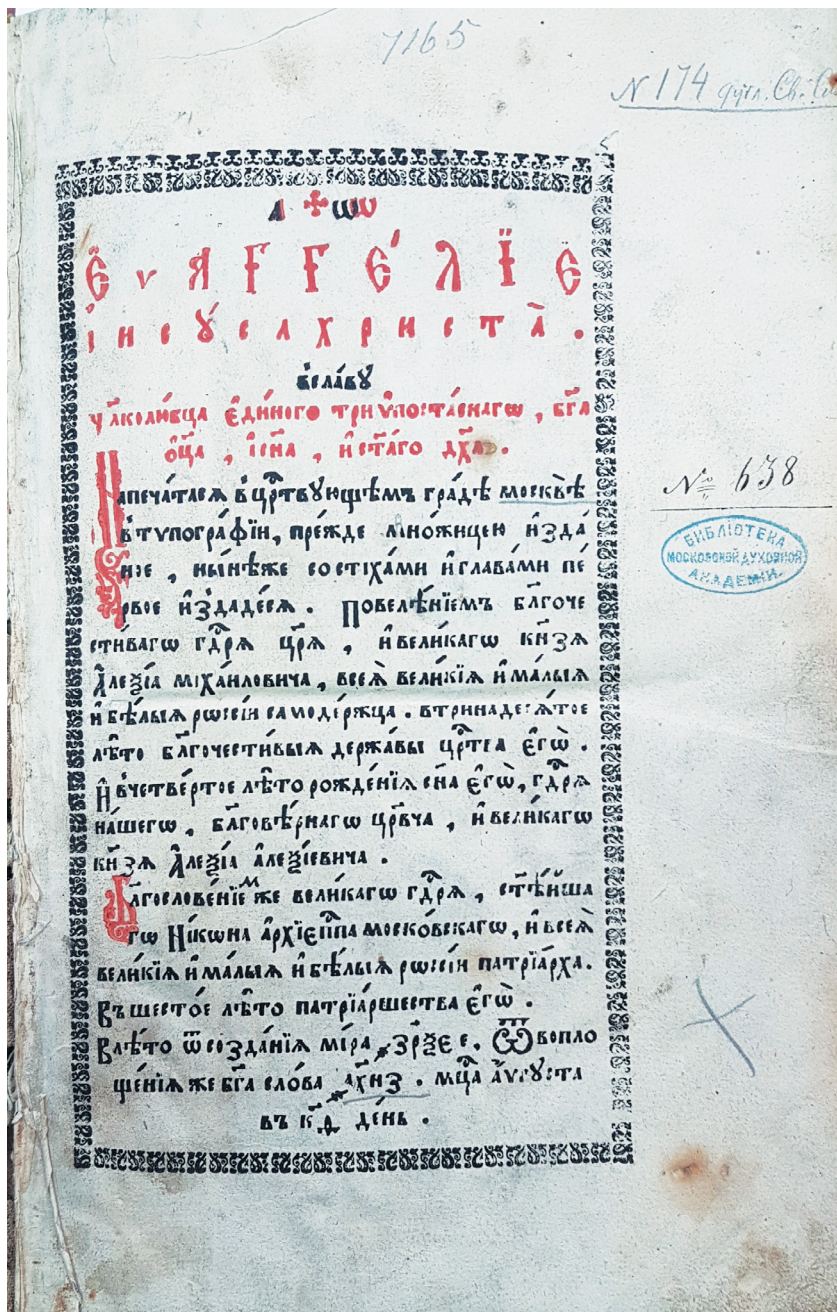 7165
N 174
А ✠ Ѡ
Є҆ѵаггє́лїє
і҆исꙋ́са христа̀ .
В̾сла́вꙋ
чл҃колю́бца є҆ди́ного трїѵ҆поста́снагѡ , бг҃а
ѻ҆ц҃а̀ , и҆сн҃а , и҆ст҃а́го дх҃а .
Напеча́тасѧ в̾црⷭ҇твꙋющемъ гра́дѣ москвѣ̀
в̾тѵпогра́фїи, пре́жде мно́жицею и҆зда́
ное , ны́нѣже состїха́ми и҆глава́ми пе́
рвое и҆здаде́сѧ . Повелѣ́нїемъ бл҃гоче
сти́вагѡ гдⷭ҇рѧ цр҃ѧ̀ , и҆вели́кагѡ кн҃зѧ
А҆леѯі́а мїха́иловича , всеѧ̀ вели́кїѧ и҆ма́лыѧ
и҆бѣ́лыѧ рѡссі́и самоде́ржца . в̾тринадесѧ́тое
лѣ́то бл҃гочести́выѧ держа́вы црⷭ҇тва є҆гѡ̀ .
И҆ в̾четве́ртое лѣ́то рожде́нїѧ сн҃а є҆гѡ̀, гдⷭ҇рѧ
на́шегѡ , бл҃говѣ́рнагѡ цр҃вча , и҆вели́кагѡ
кн҃зѧ А҆леѯі́а а҆леѯі́евича .
Бл҃гослове́нїемже вели́кагѡ гдⷭ҇рѧ , ст҃ѣ́йша
гѡ Ни́кѡна а҆рхїєпⷭ҇па моско́вскагѡ, и҆всеѧ̀
вели́кїѧ и҆ма́лыѧ и҆бѣ́лыѧ рѡссі́и патрїа́рха.
Въшесто́е лѣ́то патрїа́ршества є҆гѡ̀ .
Влѣ́то ѿ созда́нїѧ мі́ра ҂зр҃ѯе . Ѿ вопло
ще́нїѧ же бг҃а сло́ва ҂ах҃нз . мцⷭ҇а а҆́ѵгꙋста
въ к҃ѳ де́нь .
№ 638
БИБЛІОТЕКА
МОСКОВСКОЙ ДУХОВНОЙ
АКАДЕМІИ.